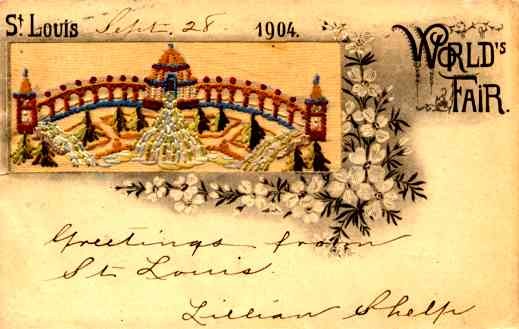 St. Louis Sept. 28 1904.
World's
Fair.
Greetings from
St Louis.
Lillian Shelp